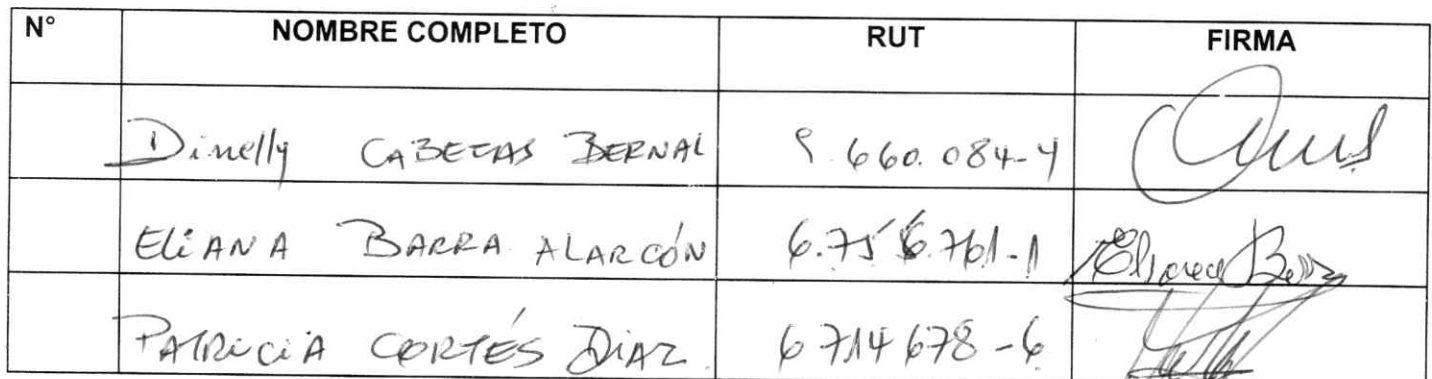 N° NOMBRE COMPLETO RUT FIRMA
Dinelly CABEZAS BERNAL 9.660.084-4
ELiANA BARRA ALARCÓN 6.756.761-1 Eliana Barra
PATRiCiA CORTÉS DiAZ. 6714678-6